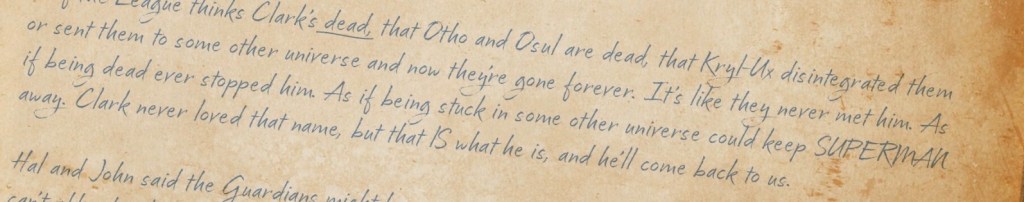 the League thinks Clark's dead, that Otho and Osul are dead, that Kryl-Ux disintegrated them
or sent them to some other universe and now they're gone forever. It's like they never met him. As
if being dead ever stopped him. As if being stuck in some other universe could keep SUPERMAN
away. Clark never loved that name, but that IS what he is, and he'll come back to us.
Hal and John said the Guardians might
can't